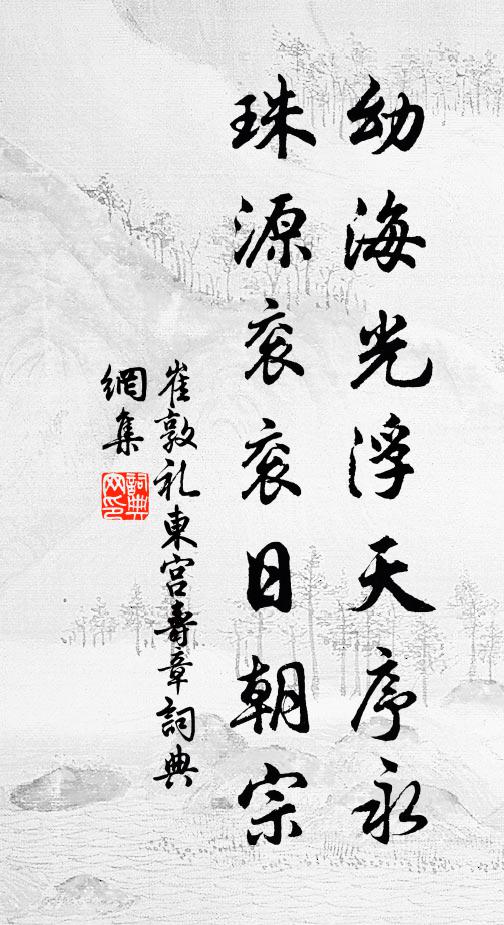 幼海光浮天序永
珠源衮衮日朝宗
崔敦礼東宫壽章詞典
網集
詞典网印